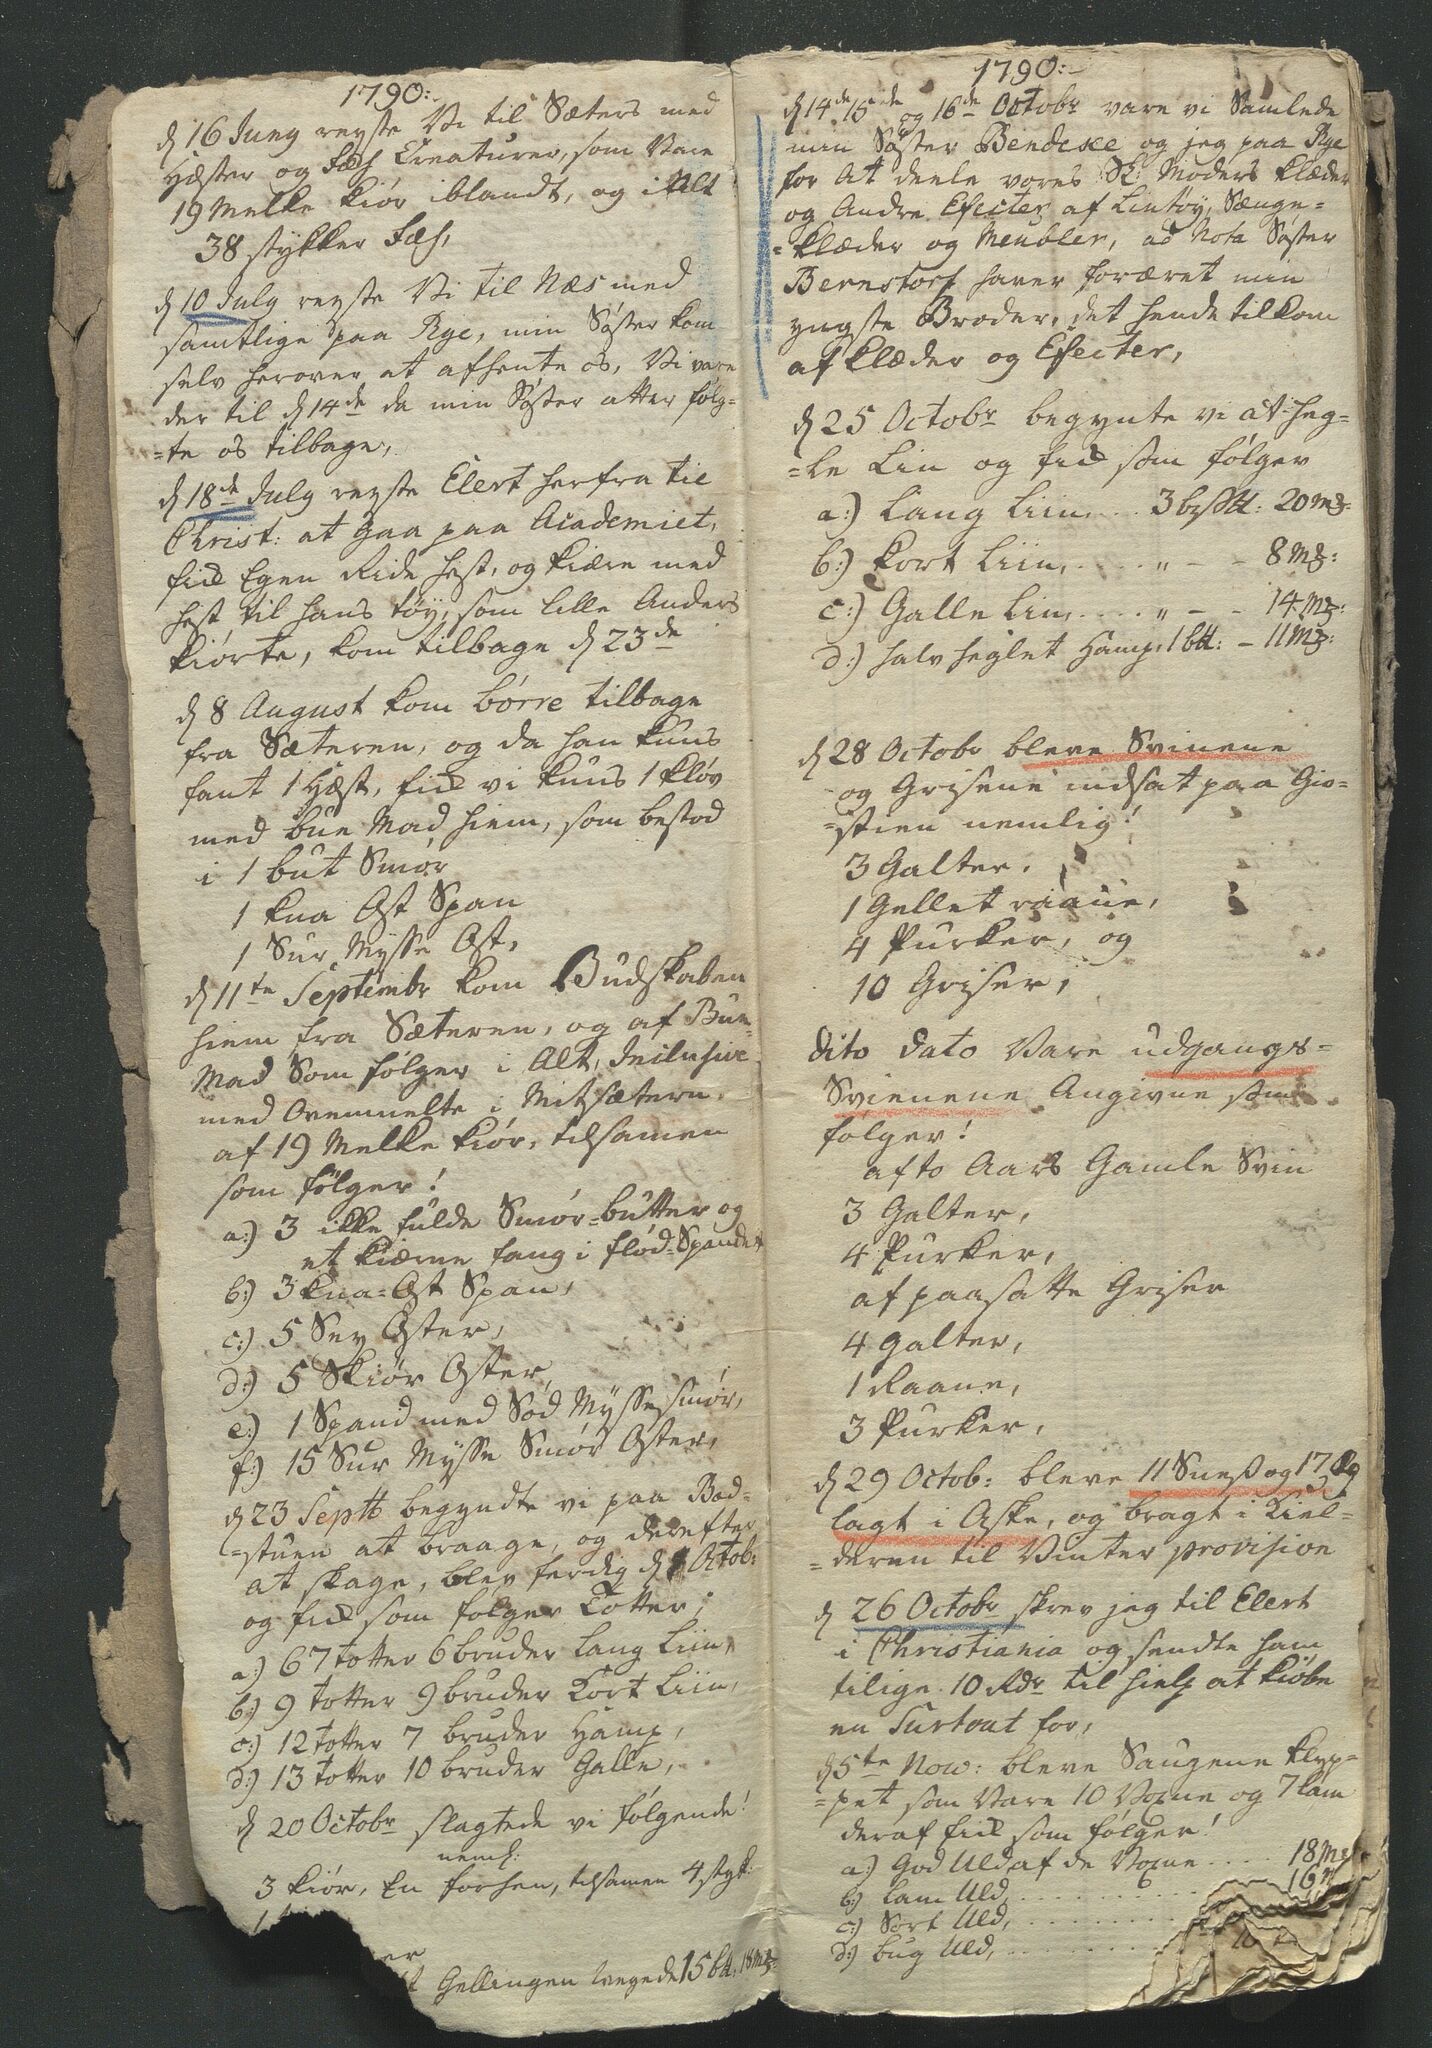 1790:
d 16 Juny reyste Vi til Sæters med
Hæster og Fæh Creaturer, som Vare
19 Melke kiør iblandt, og i Alt
38 stykker Fæh,
d 10 July reyste Vi til Næs med
samtlige paa Rye, min Søster kom
selv herover at afhente os, Vi vare
der til d 14de da min Søster atter følg=
=te os tilbage,
d 18de July reyste Elert herfra til
Christ: at Gaa paa Academiet,
fik Egen Ride hest, og kiære med
hest til hans tøy, som lille Anders
kiørte, kom tilbage d 23de
d 8 August kom børre tilbage
fra Sæteren, og da han kuns
fant 1 Hæst, fik vi kuns 1 kløv
med bue Mad hiem, som bestod
i 1 but Smør
1 kna Ost Span
1 Sur Mysse Ost,
d 11te Septembr kom Budskaben
hiem fra Sæteren, og af Bue=
Mad Som følger i Alt, Inclusive
med Ovenmelte i Mitsætern,
af 19 Melke kiør, tilsamen
som følger!
a:) 3 ikke fulde Smør=butter og
et kiærne fang i flød=Spandet
b:) 3 kna=Ost Span,
c:) 5 Sey Oster,
d:) 5 Skiør Oster,
e:) 1 Spand med Sød Mysse smør,
f:) 15 Sur Mysse Smør Oster,
d 23 Septb begyndte vi paa Bad=
=stuen at braage, og derefter
at skage, blev ferdig d Octob:
og fik som følger Totter;
a:) 67 totter 6 bruder Lang Liin,
b:) 9 totter 9 bruder Kort Liin,
c:) 12 totter 7 bruder Hamp,
d:) 13 totter 10 bruder Galle,
d 20 Octobr slagtede vi følgende!
neml:
3 kiør, En forhen, tilsamen 4 styk:
Gellingen wegede 15 btt, 18 Mk
1790:
d 14de 15de og 16de Octobr vare vi Samlede
min Søster Bendixe og jeg paa Rye
for At deele vores Sl: Moders klæder
og Andre Efecter af Lintøy, Senge=
=klæder og Meubler, ad Nota Søster
Bernstorf haver foræret min
yngste Broder, det hende tilkom
af klæder og Efecter,
d 25 Octobr begynte vi at heg=
=le Lin og fik som følger
a:) Lang Liin, . . . 3 btt: 20 Mk
b:) Kort Liin, . . . . „ - - 8 Mk:
c:) Galle Lin, . . . . „ - - 14 Mk:
d:) halv heglet Hamp, 1 btt: - 11 Mk:
d 28 Octobr bleve Svinene
og Grisene indsat paa Giø=
=stien nemlig!
3 Galter,
1 Gellet raane,
4 Purker, og
10 Griser,
Dito Dato Vare udgangs=
Svienene Angivne som
følger!
af to Aars Gamle Svin
3 Galter,
4 Purker,
af paasatte Griser
4 Galter,
1 Raane,
3 Purker,
d 29 Octob: bleve 11 Sneß og 17 Eg
lagt i Aske, og bragt i Kiel=
=deren til Vinter provision
d 26 Octobr skrev jeg til Elert
i Christiania og sendte ham
tillige 10 Rdr til hielp at kiøbe
en Surtout for,
d 5te Now: bleve Sauene klyp=
=pet som Vare 10 Voxne og 7 lam
deraf fik som følger!
a:) God Uld af de Voxne . . . . 18 Mk
b:) Lam Uld, . . . . . . . . . 16
c:) Sort Uld, . . . . . . . .
d:) bug Uld, . . . . . . . .